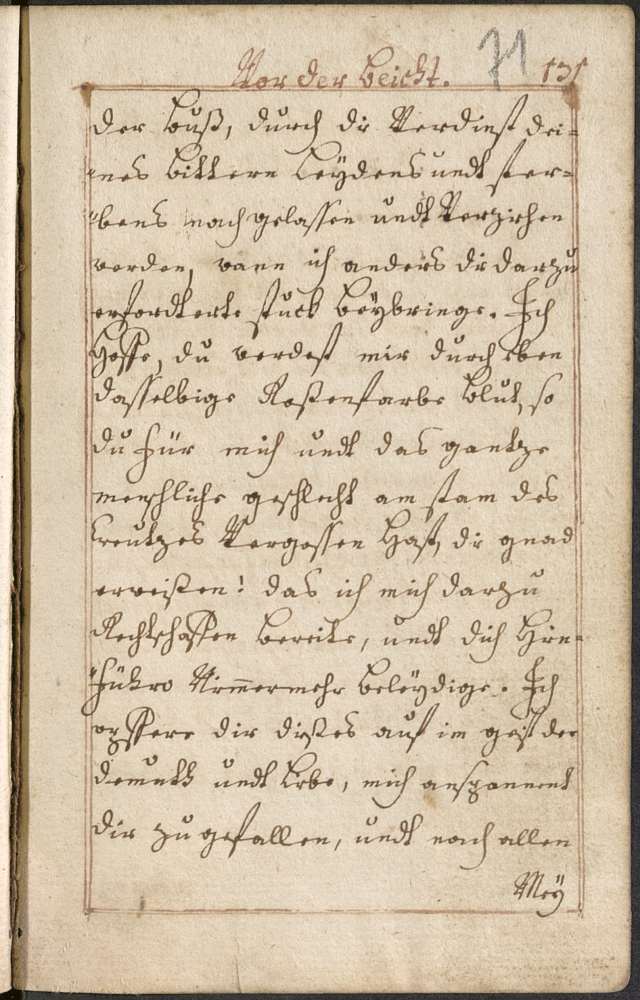 Vor der Beicht. 71 131
der buß, durch die Verdienst dei=
nes bittern Leydens undt ster=
bens nachgelassen undt Verziehen
werden, wann ich anders die darzu
erfordterte stuck beybringe. Ich
Hoffe, du werdest mir durch eben
dasselbige Roßenfarbe blut, so
du für mich undt das gantze
menschliche geschlecht am stam des
Creutzes Vergossen Hast, die gnad
erweißen! das ich mich darzu
Rechtschaffen bereite, undt dich Hin=
führo Nimmermehr beleydige. Ich
opffere dir dießes auf im geist der
demuth undt Liebe, mich
dir zu gefallen, undt nach allen
Mey